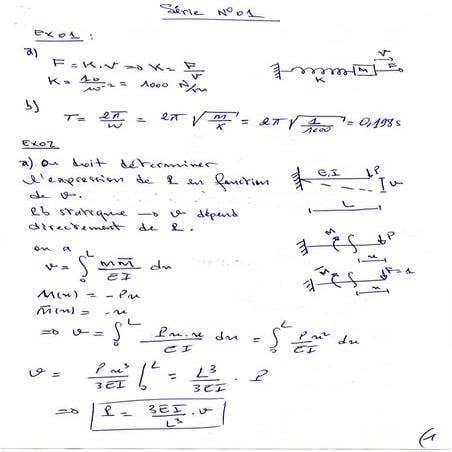 Série N°01
Ex01 :
a)
F = K.v => K = F/v
K = 10/10^-2 = 1000 N/m
v
F
K
M
b)
T = 2π/w = 2π √(m/K) = 2π √(1/1000) = 0,198s
Ex02
a) on doit déterminer
l'expression de P en fonction
de v.
Pb statique → v dépend
directement de P.
E,I
P
v
L
on a
v = ∫₀ᴸ M M̄/EI dx
M
P
x
M̄
P=1
x
M(x) = -Px
M̄(x) = -x
=> v = ∫₀ᴸ Px.x/EI dx = ∫₀ᴸ Px²/EI dx
v = Px³/3EI |₀ᴸ = L³/3EI . P
=> P = 3EI/L³ . v
(1